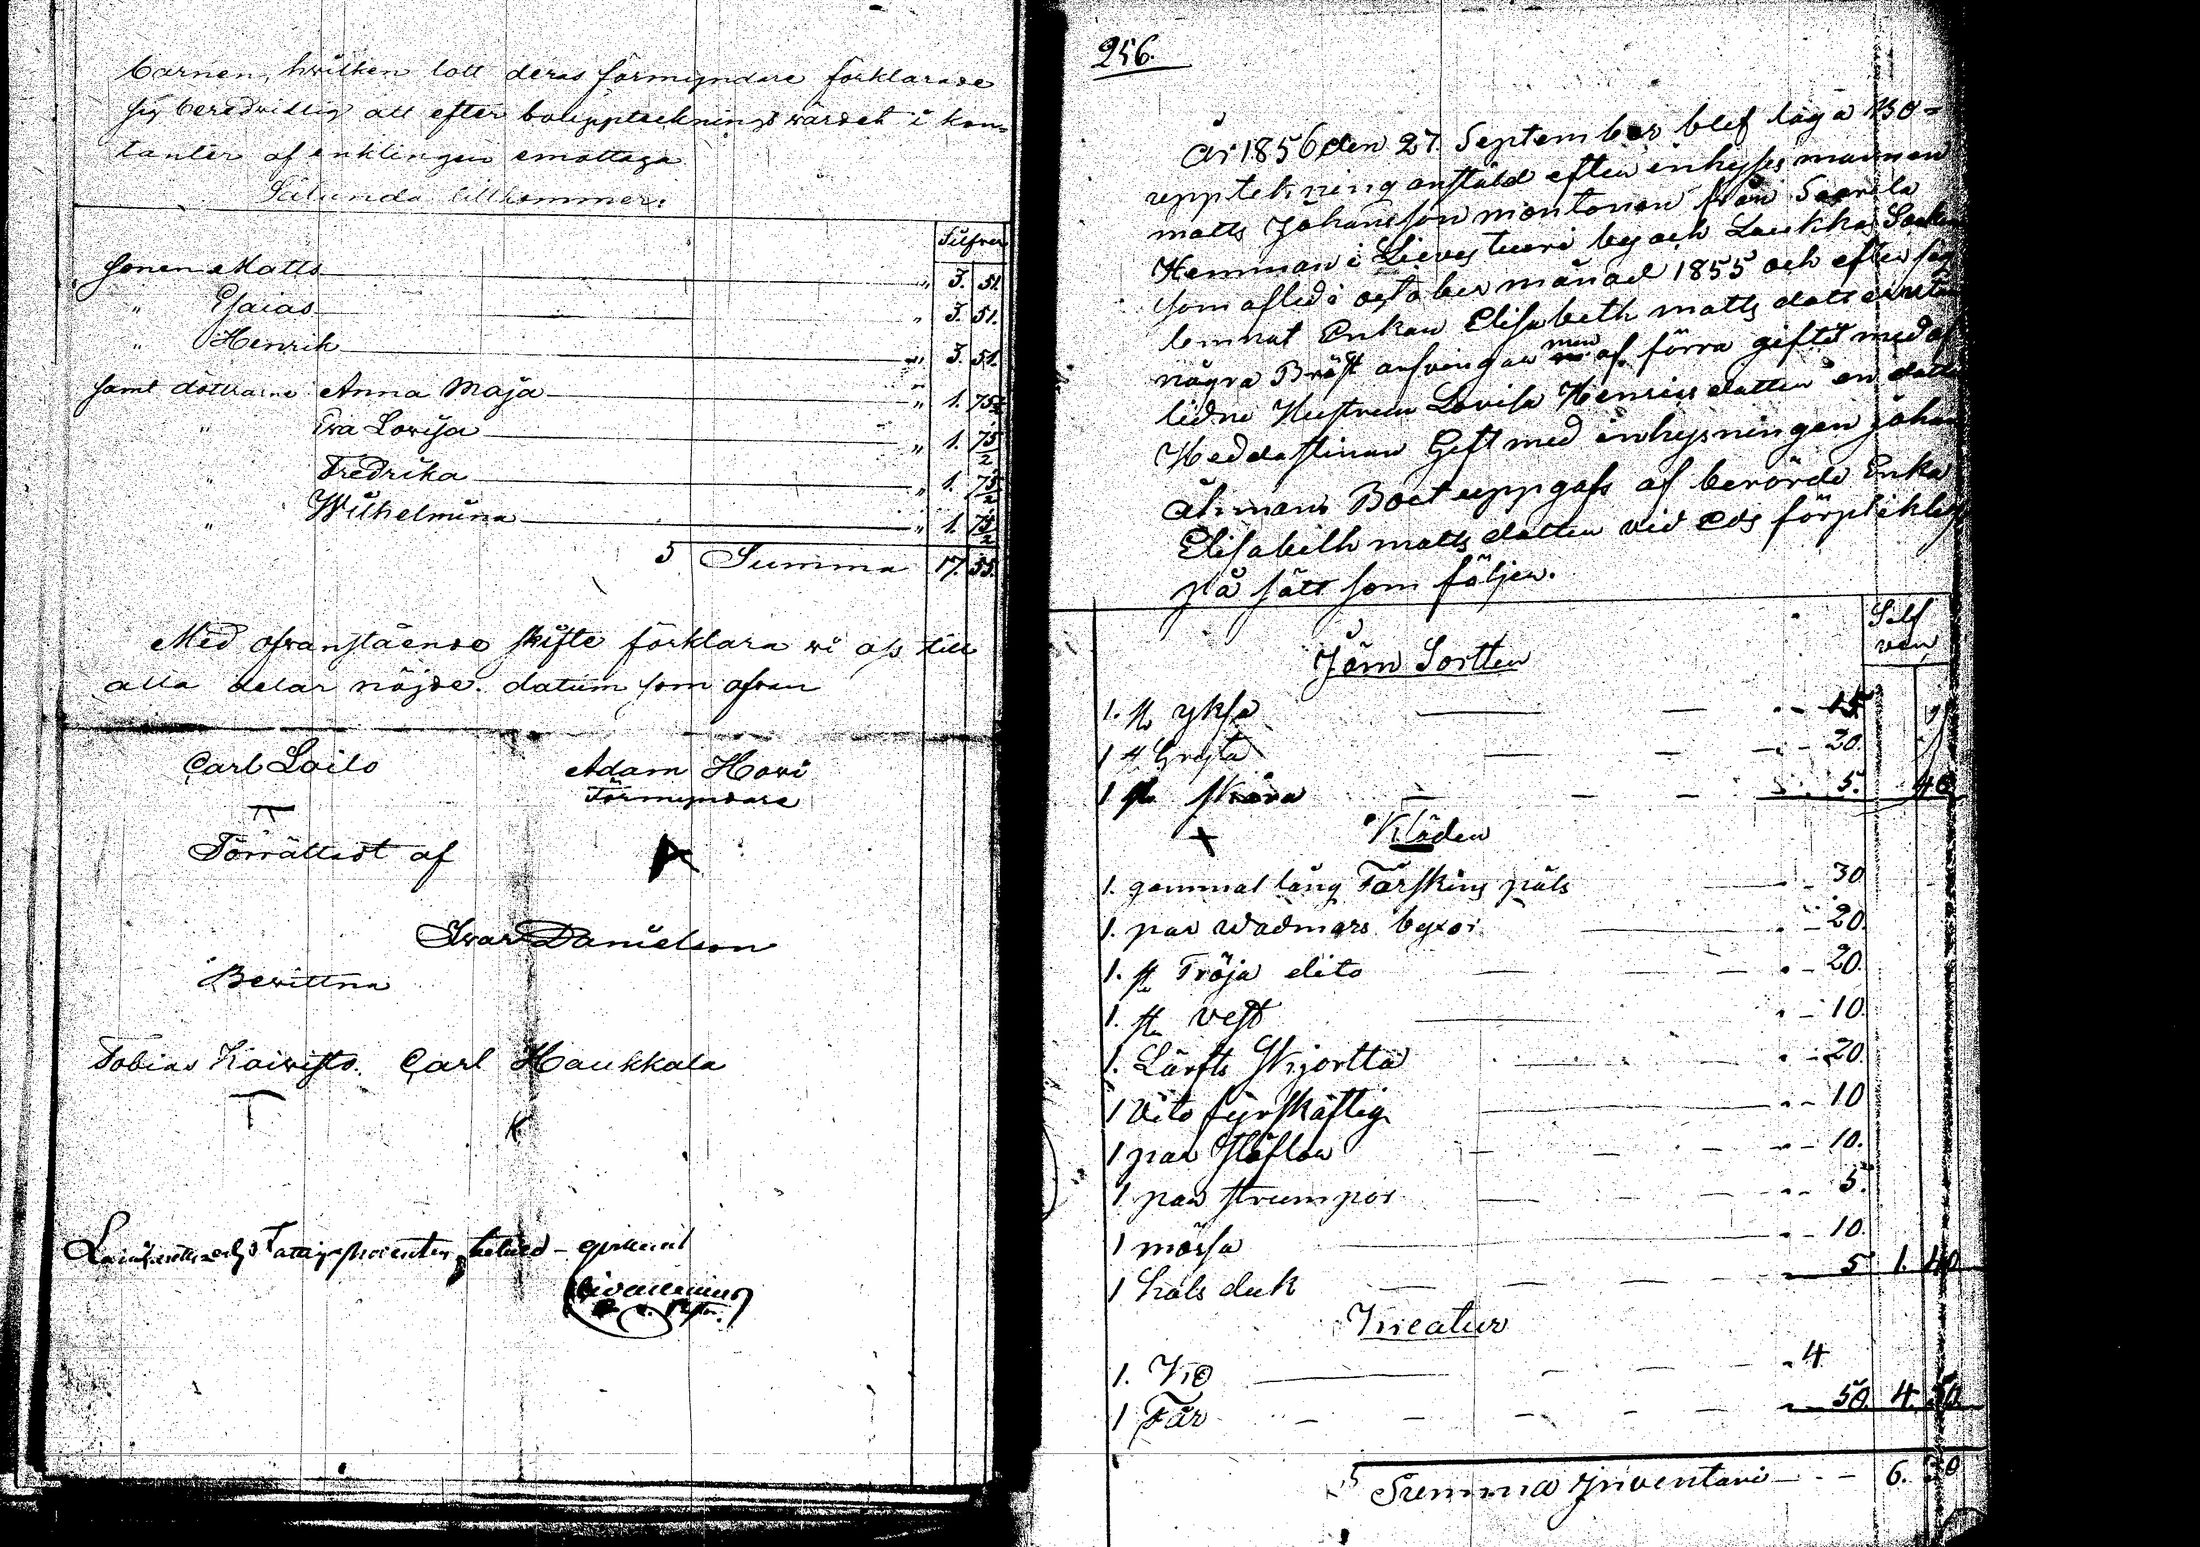 barnen, hwilken lott deras förmyndare förklarade
sig beredvillig att efter bouppteckningswärdet i kon-
tanter af enklingen emottaga
Sålunda tillkommer:
Silfver
Sonen Matts " 3. 51.
" Esaias " 3. 51.
" Henrik " 3. 51.
samt döttrarne Anna Maja " 1. 75½
" Eva Lovisa " 1. 75½
" Fredrika " 1. 75½
" Wilhelmina " 1. 75½
Summa 17. 55.
Med ofvanstående skifte förklara wi oss till
alla delar nöjde. datum som ofvan
Carl Loilo Adam Howi
Förmyndare
Förrättadt af
Ivar Danielson
Bevittna
Tobias Koivisto. Carl Haukkala
K
256.
År 1856 den 27 September blef laga Bo-
upptekning anstäld efter inhyses mannen
matts Johansson montonen från Saarela
Hemman i Lievestuori by och Laukka Socken
som afled i october månad 1855 och efter sig
lemnat Enkan Elisabeth matts dotter utan
några Bröst arfvingar men af förra giftet med af
lidne Hustrun Lovisa Henrics dotter en dotter
Heddastinan Gift med inhysningen Johan
Åhman Boet uppgafs af berörde Enka
Elisabeth matts dotter vid eds förpliktig
på sätt som följer.
Self
ver
Järn Sortter
1. st yksa " - 15
1 st Gryta " - 20.
1 st skära " 5. 40
Kläder
1. gammal lång Fårskins päls " - 30
1. par wadmars byxor " - 20.
1. st Tröja dito " - 20.
1. st vest " - 10.
1. Lärfts Skjortta " - 20.
1 dito fyrskäftig " - 10
1 par stöflar " - 10.
1 par strumpor " - 5.
1 mössa " - 10.
1 hals duk " 5 1. 40
Kreatur
1. Ko " 4
1 Får " 50. 4. 50.
Summa Inventari - - 6. 30